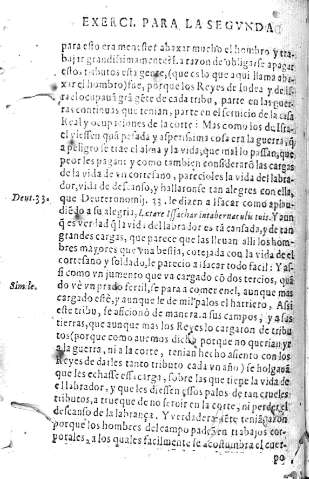 EXERCI. PARA LA SEGVNDA
para esto era menester abaxar mucho el hombro y tra-
bajar grandissimamente: La razon de obligarse a pagar
estos tributos esta gente, (que es lo que aqui llama aba-
xar el hombro) fue, porque los Reyes de Iudea y de Iss
ra el ocupauā grā gēte de cada tribu, parte en las guer-
ras continuas que tenian, parte en el seruicio de la casa
Real y ocupaciones de la corte: Mas como los de Issa-
viessen quā pesada y asperissima cosa era la guerra y
a peligro se trae el alma y la vida, que mal lo passan, que
peor les pagan: y como tambien consideraró las cargas
de la vida de vn cortesano, pareció les la vida del labra-
dor, vida de descanso, y hallaronse tan alegres con ella,
Deut. 33. que Deuteronomij. 33. le dizen a Isacar como aplau-
diēdo a su alegria, Letare Issachar in tabernaculis tuis. Y aun
q̄ es verdad q̄ la vida del labrador es tā cansada, y de tan
grandes cargas, que parece que las lleuan alli los hom-
bres mayores que vna bestia, cotejada con la vida de el
cortesano y soldado, le parecio a isacar todo facil: Y as-
si como vn jumento que va cargado cō dos tercios, quā
Simile. do vè vn prado fertil, se para a comer en el, aunque mas
cargado estè, y aunque le de mil palos el harriero, Assi
este tribu, se aficionò de manera a sus campos, y a sus
tierras, que aunque mas los Reyes lo cargaron de tribu
tos (porque como auemos dicho porque no querian yr
a la guerra, ni a la corte, tenian hecho asiento con los
Reyes de darles tanto tributo cada vn año) se holgaua
que les echasse essa carga, sobre las que tiene la vida de
el labrador, y que les diessen essos palos de tan crueles
tributos, a trueque de no seruir en la corte, ni perder el
descanso de la labrança. Y verdaderamēte teniā razon
porque los hombres del campo padecen trabajos cor-
porales, a los quales facilmente se acostumbra el cuer-
po